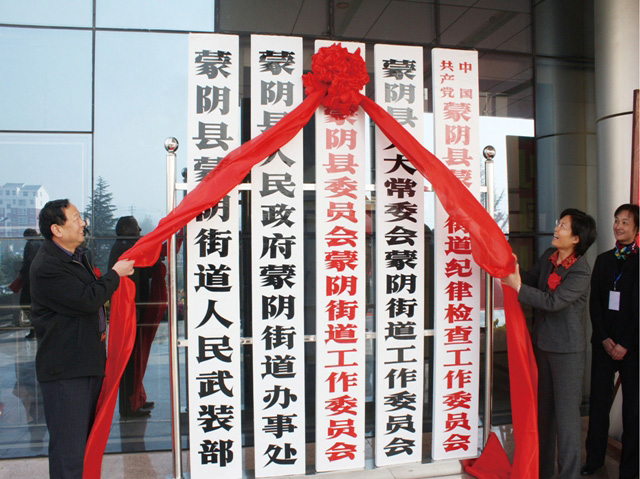 蒙阴县蒙阴街道人民武装部
蒙阴县人民政府蒙阴街道办事处
蒙阴县委员会蒙阴街道工作委员会
蒙阴县人大常委会蒙阴街道工作委员会
中国
共产党
蒙阴县蒙街道纪律检查工作委员会